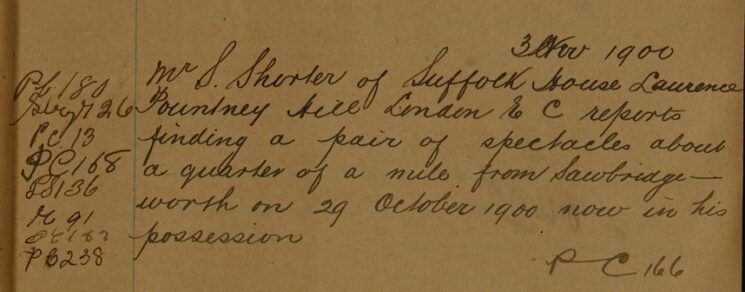 3 Nov 1900
Mr S. Shorter of Suffolk House Laurence
Pountney Hill London E C reports
finding a pair of spectacles about
a quarter of a mile from Sawbridge-
worth on 29 October 1900 now in his
possession
P C 166
PC 180
26
P.C. 13
PC 168
136
91
PC 238